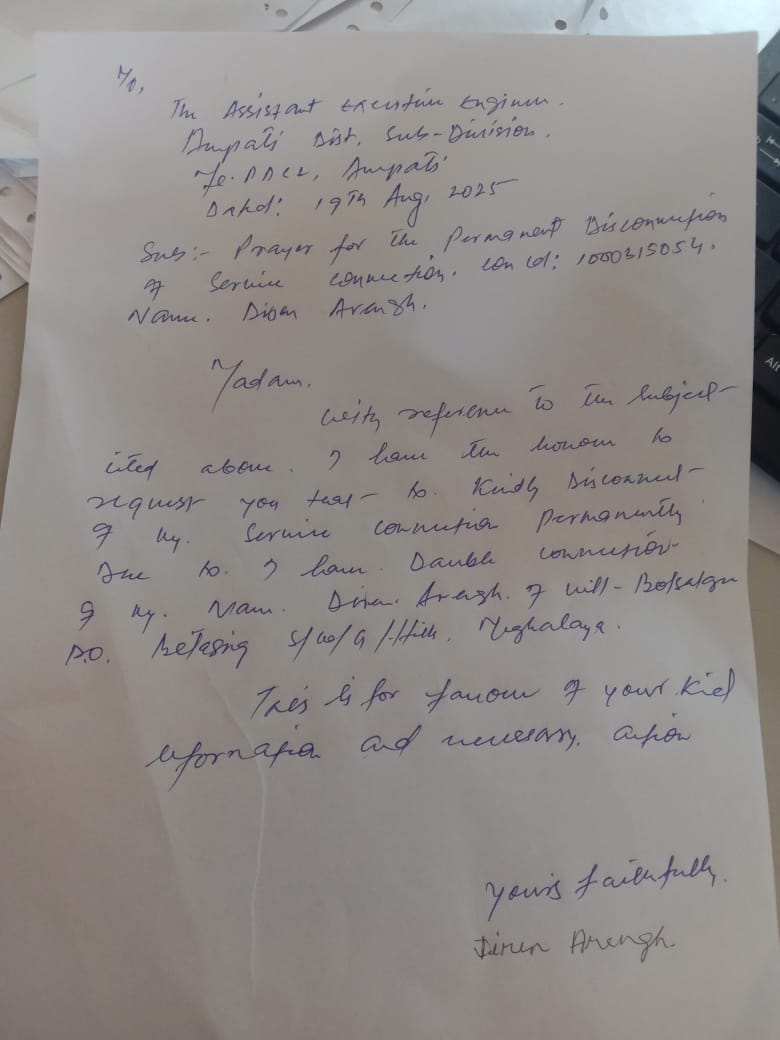 To,
The Assistant Executive Engineer.
Ampati Dist. Sub-Division.
Me.PDCL, Ampati
Dated: 19th Aug, 2025
Sub:- Prayer for the Permanent Disconnection
of Service connection. Con Id: 1000315054.
Name. Diren Arengh.
Madam.
With reference to the subject
cited above. I have the honour to
request you that to. Kindly Disconnect
of my. Service connection Permanently
Due to. I have. Double connection
of my. Name. Diren. Arengh. of vill-
P.O. Betasing S/W/G/Hills, Meghalaya.
This is for favour of your kind
information and necessary. action
Yours faithfully.
Diren Arengh.